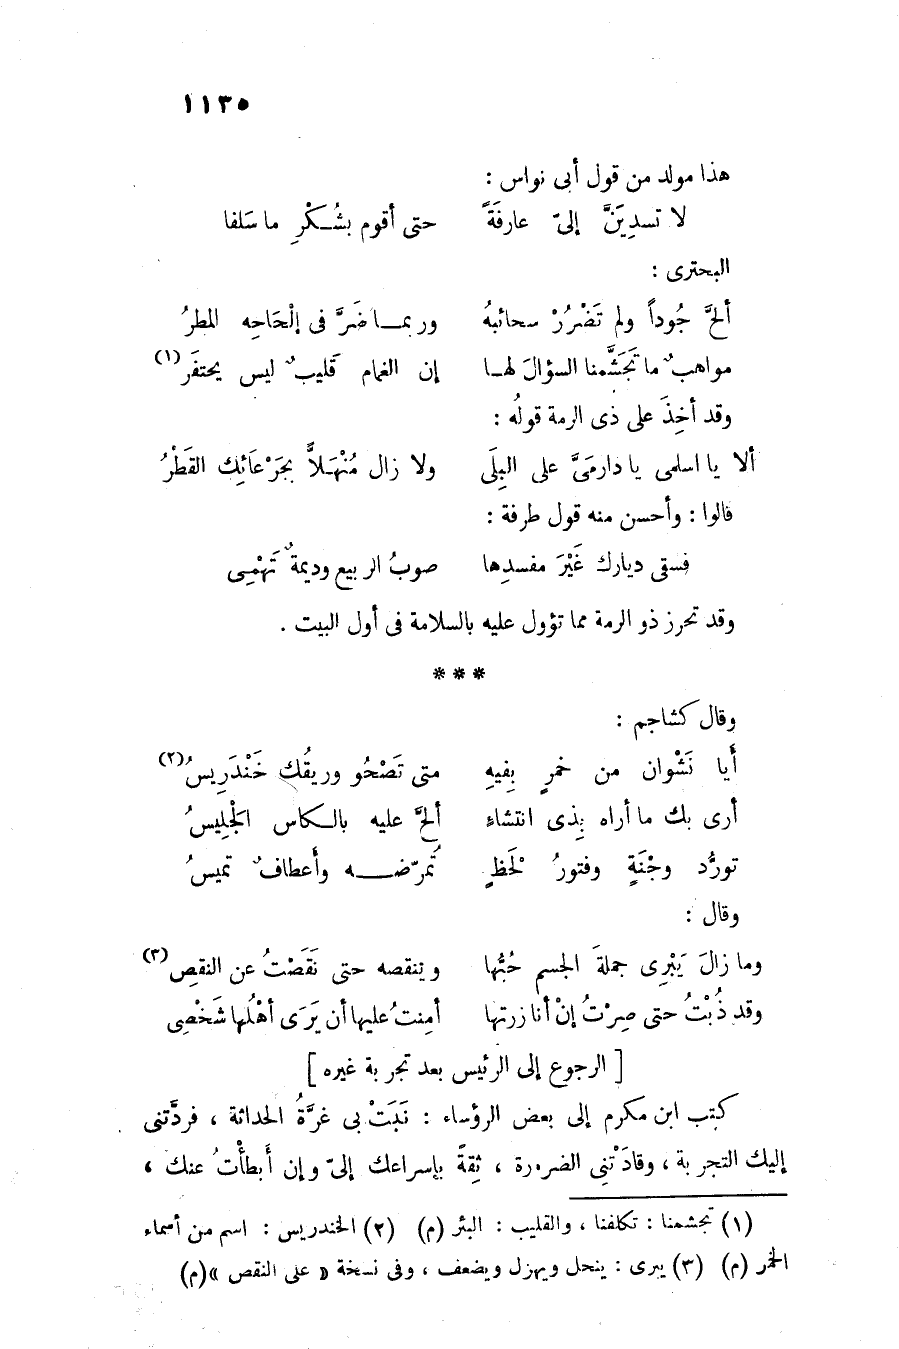 ١١٣٥
هذا مولد من قول أبى نواس :
لا تسدِيَنَّ إلىّ عارفَةً حتى أقوم بشُـكْرِ ما سَلفا
البحترى :
ألحَّ جُوداً ولم تَضْرُرْ سحائبهُ وربمـا ضَرَّ فى إلْحَاحِه المطرُ
مواهبٌ ما تَجَشَّمنا السؤالَ لهـا إن الغمام قَليبٌ ليس يحتفَر(١)
وقد أخِذَ على ذى الرمة قولُه :
ألا يا اسلمى يا دارمَىَّ على البِلَى ولا زال مُنْهَلاًّ بجَرْعَائِك القَطْرُ
قالوا : وأحسن منه قول طرفة :
فسقى ديارك غَيْرَ مفسدِها صوبُ الربيع وديمةٌ تَهْمِـى
وقد تحرز ذو الرمة مما تؤول عليه بالسلامة فى أول البيت .
* * *
وقال كشاجم :
أَيا نَشْوان من خمرٍ بِفيهِ متى تَصْحُو وريقُك خَنْدَرِيسُ(٢)
أرى بك ما أراه بِذى انتشاءِ ألحَّ عليه بالـكاس الجْلِيسُ
تورُّد وجْنَةٍ وفتورُ لَحْظٍ تُمرّضـــه وأَعطافٌ تميسُ
وقال :
وما زالَ يَبْرِى جملةَ الجسم حُبُّها وينقصه حتى نَقَصْتُ عن النقصِ(٣)
وقد ذُبْتُ حتى صِرْتُ إنْ أنا زرتها أمِنتُ عليها أن يَرَى أهْلُها شَخْصِى
[ الرجوع إلى الرئيس بعد تجربة غيره ]
كتب ابن مكرم إلى بعض الرؤساء : نَبَتْ بى غرَّةُ الحداثة ، فردَّتنى
إليك التجربة ، وقادَتْنِى الضرورة ، ثِقةً بإسراعك إلىّ وإن أَبطأْتُ عنك ،
(١) تجشمنا : تكلفنا ، والقليب : البئر (م) (٢) الخندريس : اسم من أسماء
الخمر (م) (٣) يبرى : ينحل ويهزل ويضعف ، وفى نسخة « على النقص »(م)